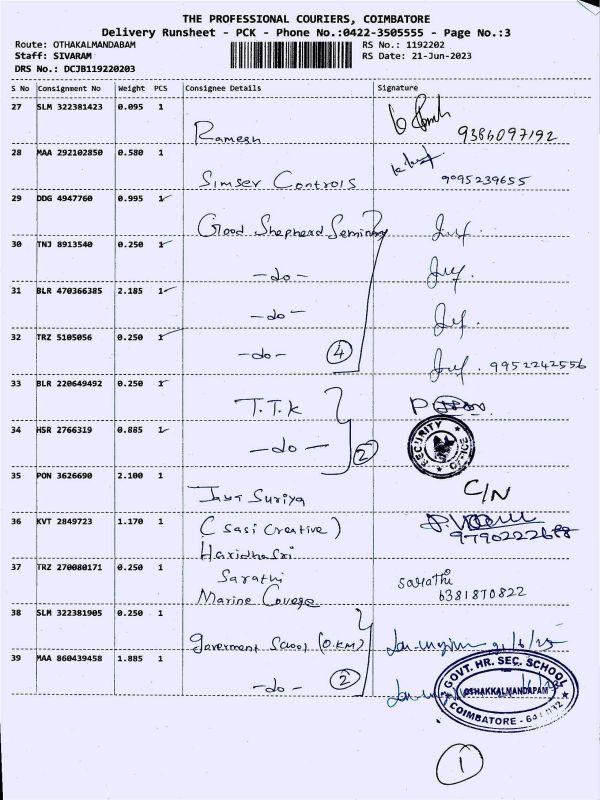 THE PROFESSIONAL COURIERS, COIMBATORE
Delivery Runsheet - PCK - Phone No.:0422-3505555 - Page No.:3
Route: OTHAKALMANDABAM RS No.: 1192202
Staff: SIVARAM RS Date: 21-Jun-2023
DRS No.: DCJB119220203
S No Consignment No Weight PCS Consignee Details Signature
27 SLM 322381423 0.095 1
Ramesh 9386097192
28 MAA 292102850 0.580 1
Simsev Controls 9095239655
29 DDG 4947760 0.995 1
Good Shepherd Seminary
30 TNJ 8913540 0.250 1
-do-
31 BLR 470366385 2.185 1
-do-
32 TRZ 5105056 0.250 1
-do- 4 9952242556
33 BLR 220649492 0.250 1
T.T.K
34 HSR 2766319 0.885 1
-do- 2 SECURITY OFFICE
35 PON 3626690 2.100 1
Jaya Suriya C/N
36 KVT 2849723 1.170 1
(Sasi Creative)
Haridhasri
37 TRZ 270080171 0.250 1
Sarathi Sarathi
Marine College 6381870822
38 SLM 322381905 0.250 1
Goverment School (O.KM)
39 MAA 860439458 1.885 1
-do- 2
GOVT. HR. SEC. SCHOOL
OSHAKKALMANDAPAM
COIMBATORE
1